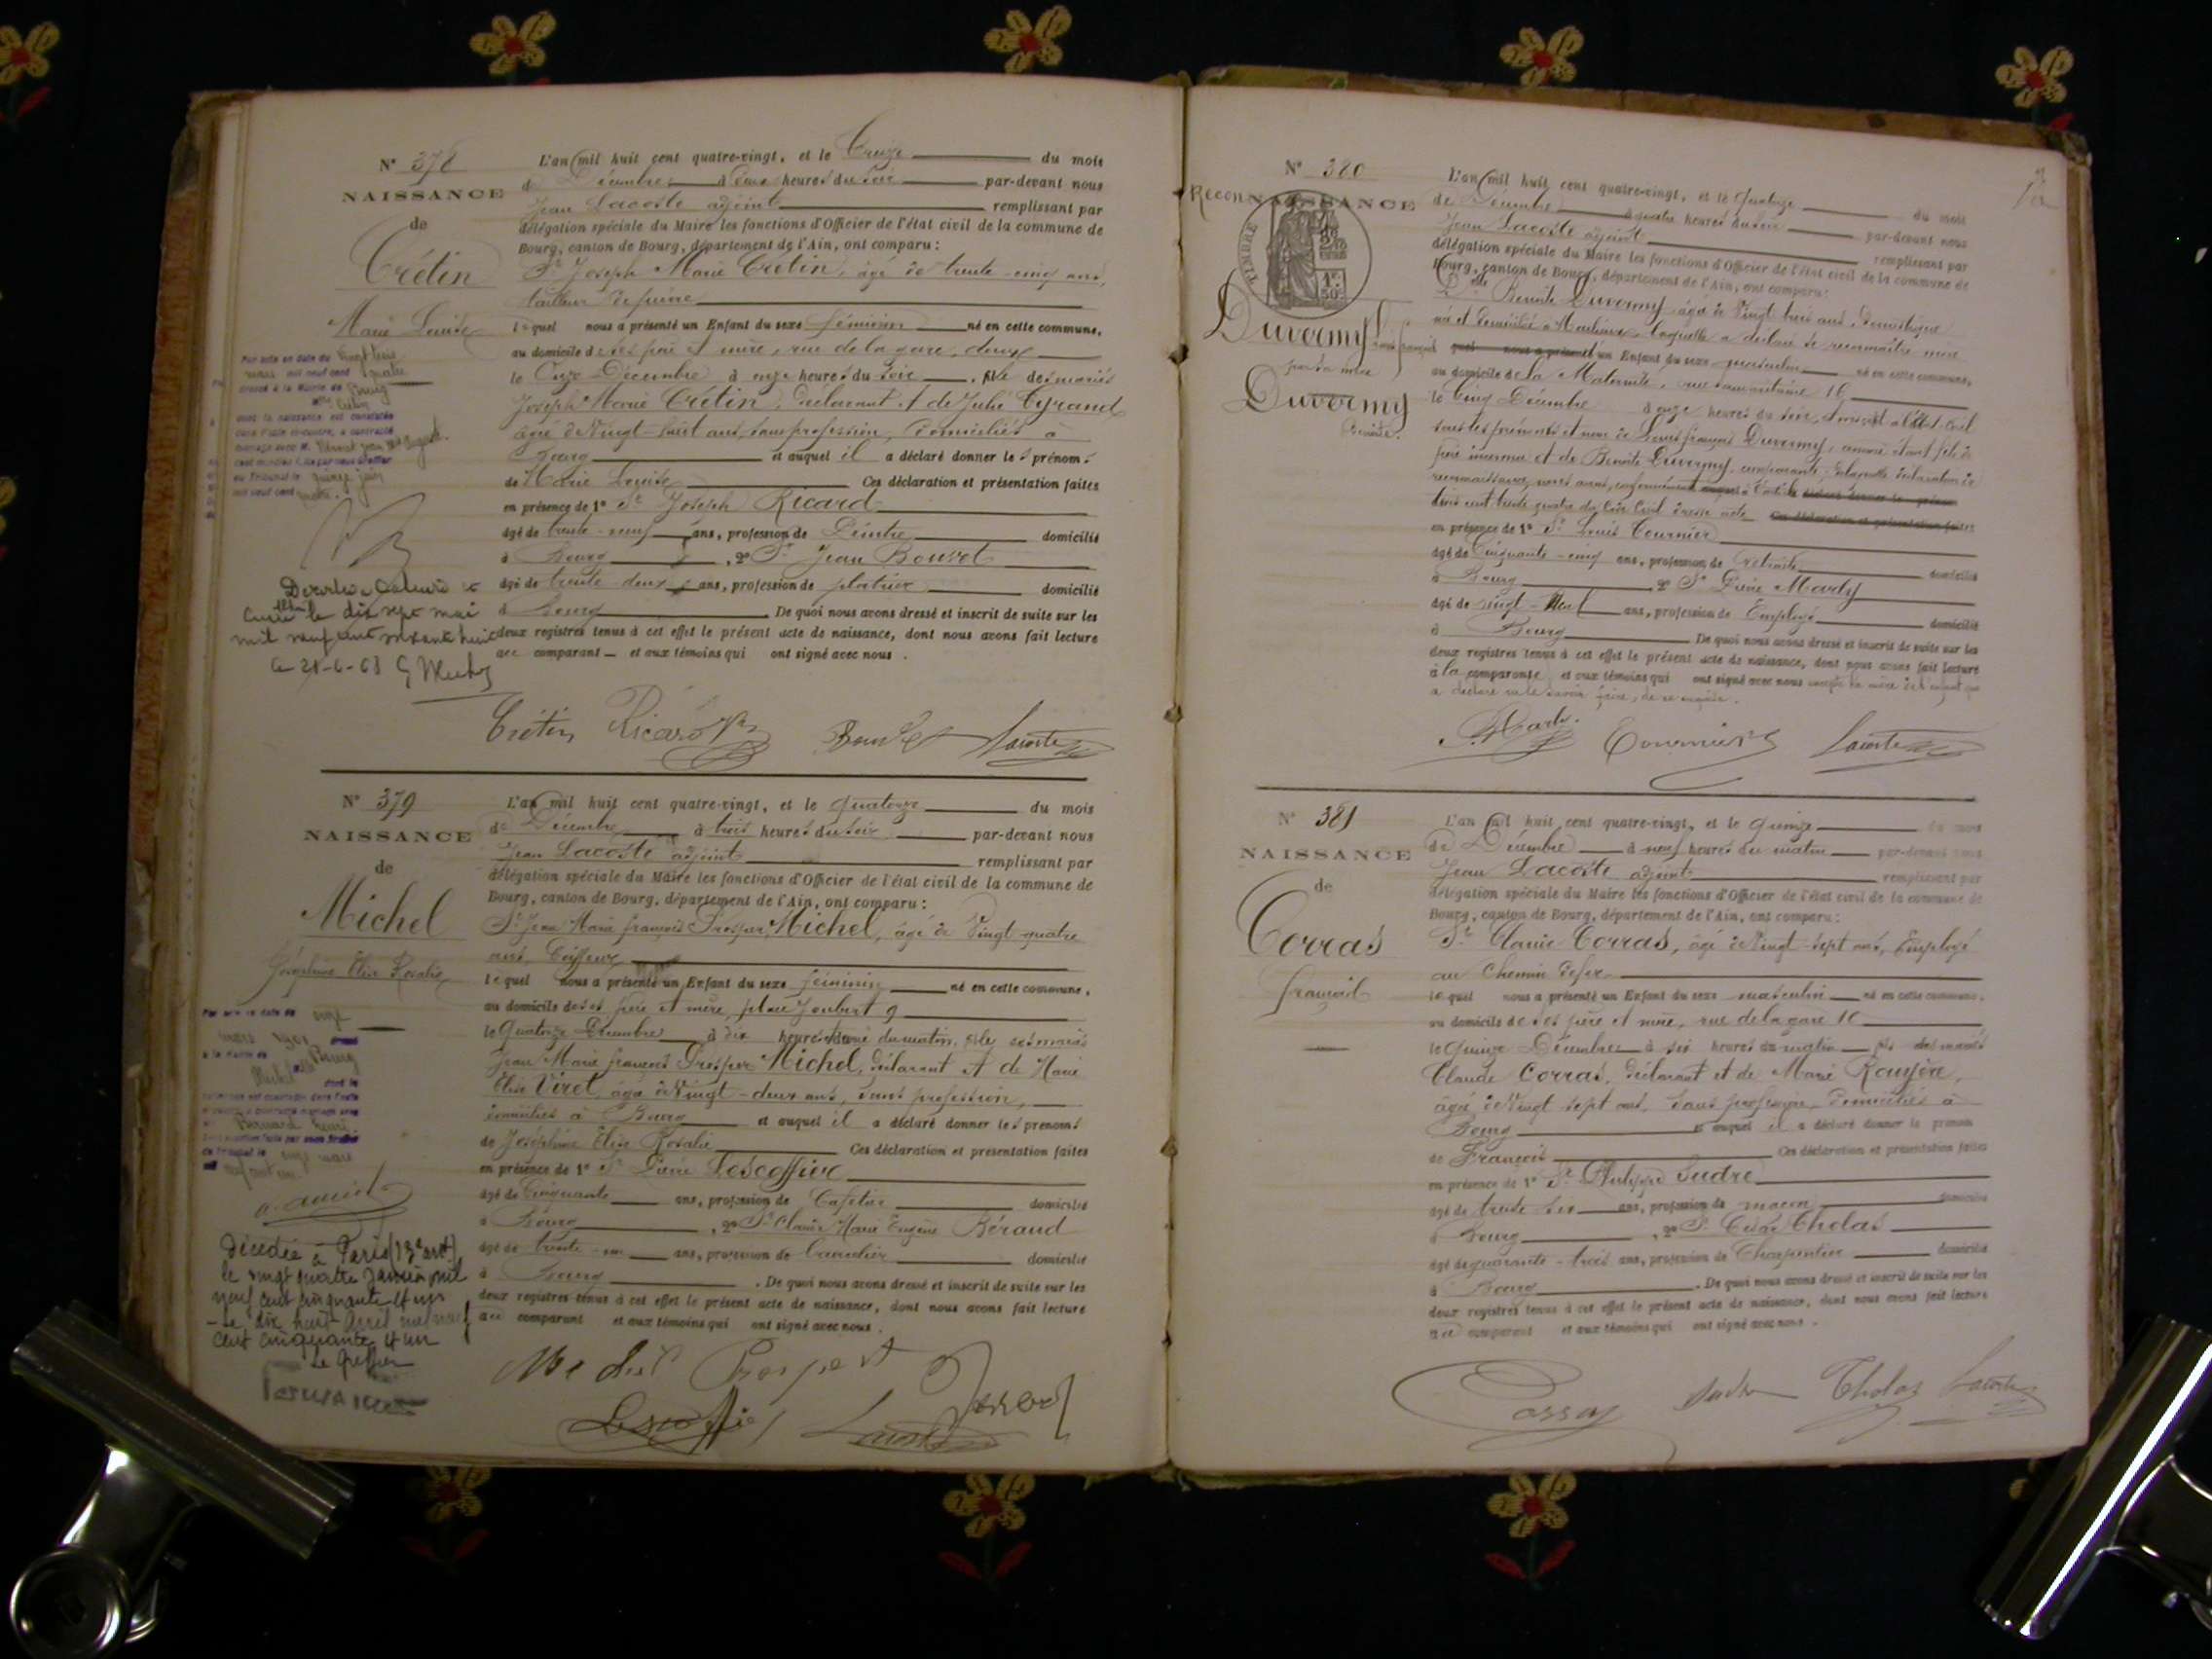 N° 378
NAISSANCE
de
Crétin
Marie Louise
L'an mil huit cent quatre-vingt, et le Treize du mois
de Décembre à deux heures du soir par-devant nous
Jean Lacoste adjoint remplissant par
délégation spéciale du Maire les fonctions d'Officier de l'état civil de la commune de
Bourg, canton de Bourg, département de l'Ain, ont comparu :
Sr Joseph Marie Crétin, âgé de trente-cinq ans,
tailleur de pierre
lequel nous a présenté un Enfant du sexe féminin né en cette commune,
au domicile de ses père et mère, rue de la gare, deux
le Onze Décembre à onze heures du soir, fille des mariés
Joseph Marie Crétin, déclarant et de Julie Tyrand
âgée de vingt-huit ans, sans profession, domiciliés à
Bourg et auquel il a déclaré donner les prénoms
de Marie Louise Ces déclaration et présentation faites
en présence de 1° Sr Joseph Ricard
âgé de trente-neuf ans, profession de Peintre domicilié
à Bourg, 2° Sr Jean Bouvet
âgé de trente deux ans, profession de platrier domicilié
à Bourg De quoi nous avons dressé et inscrit de suite sur les
deux registres tenus à cet effet le présent acte de naissance, dont nous avons fait lecture
au comparant et aux témoins qui ont signé avec nous.
Par acte en date du vingt trois
mars mil neuf cent quatre
dressé à la Mairie de Bourg
Crétin
dont la naissance est constatée
dans l'acte ci-contre, a contracté
mariage avec M.
au Tribunal le quinze juin
mil neuf cent quatre.
Décédée à Caluire et
Cuire le dix sept mai
mil neuf cent soixante huit
le 21-6-68
Crétin Ricard Bouvet Lacoste
N° 379
NAISSANCE
de
Michel
Joséphine Elise Rosalie
L'an mil huit cent quatre-vingt, et le quatorze du mois
de Décembre à trois heures du soir par-devant nous
Jean Lacoste adjoint remplissant par
délégation spéciale du Maire les fonctions d'Officier de l'état civil de la commune de
Bourg, canton de Bourg, département de l'Ain, ont comparu :
Sr Jean Marie françois Prosper Michel, âgé de Vingt quatre
ans Coiffeur
lequel nous a présenté un Enfant du sexe féminin né en cette commune,
au domicile de ses père et mère, place Joubert 9
le Quatorze Décembre à dix heures et demie du matin, fille des mariés
Jean Marie françois Prosper Michel, déclarant et de Marie
Elise Viret, âgée de Vingt-deux ans, sans profession,
domiciliés à Bourg et auquel il a déclaré donner les prenoms
de Joséphine Elise Rosalie Ces déclaration et présentation faites
en présence de 1° Sr Pierre Lescoffier
âgé de Cinquante ans, profession de Cafetier domicilié
à Bourg, 2° Sr Claude Marie Eugène Béraud
âgé de trente-un ans, profession de domicilié
à Bourg. De quoi nous avons dressé et inscrit de suite sur les
deux registres tenus à cet effet le présent acte de naissance, dont nous avons fait lecture
au comparant et aux témoins qui ont signé avec nous.
Par acte en date du onze
mars 1901 dressé
à la Mairie de Bourg
Michel
Bernard Henri
du Tribunal le onze mars
mil neuf cent un
Décédée à Paris (13e arrt)
le vingt quatre janvier mil
neuf cent cinquante et un
- Le dix huit Avril mil neuf
cent cinquante et un
Le Greffier
Michel Prosper Béraud
Lescoffier Lacoste
N° 380
RECONNAISSANCE
TIMBRE
Duvermy
Louis françois
par sa mère
Duvermy
Benoite.
L'an mil huit cent quatre-vingt, et le Quatorze du mois
de Décembre à quatre heures du soir par-devant nous
Jean Lacoste adjoint remplissant par
délégation spéciale du Maire les fonctions d'Officier de l'état civil de la commune de
Bourg, canton de Bourg, département de l'Ain, ont comparu :
Delle Benoite Duvermy, âgée de Vingt trois ans, Domestique
née et domiciliée à laquelle a déclaré se reconnaître mère
quel nous a présenté d'un Enfant du sexe masculin né en cette commune,
au domicile de la Maternité, rue Samaritaine 16
le Cinq Décembre à onze heures du soir, et inscrit à l'état-Civil
sous les prénoms et nom de Louis françois Duvermy, comme étant fils de
père inconnu et de Benoite Duvermy, comparante. De laquelle déclaration de
reconnaissance, nous avons, conformément à l'article
trois cent trente quatre du Code Civil dressé acte
en présence de 1° Sr Louis Tournier
âgé de Cinquante-cinq ans, profession de retraité domicilié
à Bourg 2° Sr Pierre Marly
âgé de vingt-neuf ans, profession de Employé domicilié
à Bourg De quoi nous avons dressé et inscrit de suite sur les
deux registres tenus à cet effet le présent acte de naissance, dont nous avons fait lecture
à la comparante et aux témoins qui ont signé avec nous excepté la mère de l'enfant qui
a déclaré ne le savoir faire, de ce enquise.
Marly Tournier Lacoste
N° 381
NAISSANCE
de
Corras
françois
L'an mil huit cent quatre-vingt, et le quinze du mois
de Décembre à neuf heures du matin par-devant nous
Jean Lacoste adjoint remplissant par
délégation spéciale du Maire les fonctions d'Officier de l'état civil de la commune de
Bourg, canton de Bourg, département de l'Ain, ont comparu :
Sr Claude Corras, âgé de Vingt-sept ans, Employé
au Chemin de fer
lequel nous a présenté un Enfant du sexe masculin né en cette commune,
au domicile de ses père et mère, rue de la gare 16
le quinze Décembre à six heures du matin fils des mariés
Claude Corras, déclarant et de Marie Roujère,
âgée de Vingt sept ans, sans profession, domiciliés à
Bourg et auquel il a déclaré donner le prénom
de François Ces déclaration et présentation faites
en présence de 1° Sr Philippe Sudre
âgé de trente six ans, profession de maçon domicilié
à Bourg, 2° Sr César Tholas
âgé de quarante-trois ans, profession de Charpentier domicilié
à Bourg. De quoi nous avons dressé et inscrit de suite sur les
deux registres tenus à cet effet le présent acte de naissance, dont nous avons fait lecture
au comparant et aux témoins qui ont signé avec nous.
Corras Sudre Tholas Lacoste